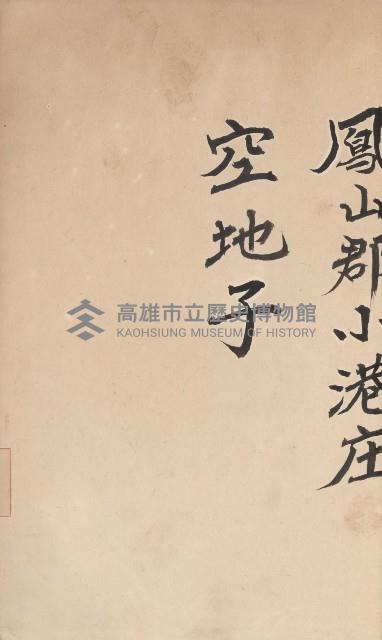 鳳山郡小港庄
空地子
高雄市立歷史博物館
KAOHSIUNG MUSEUM OF HISTORY